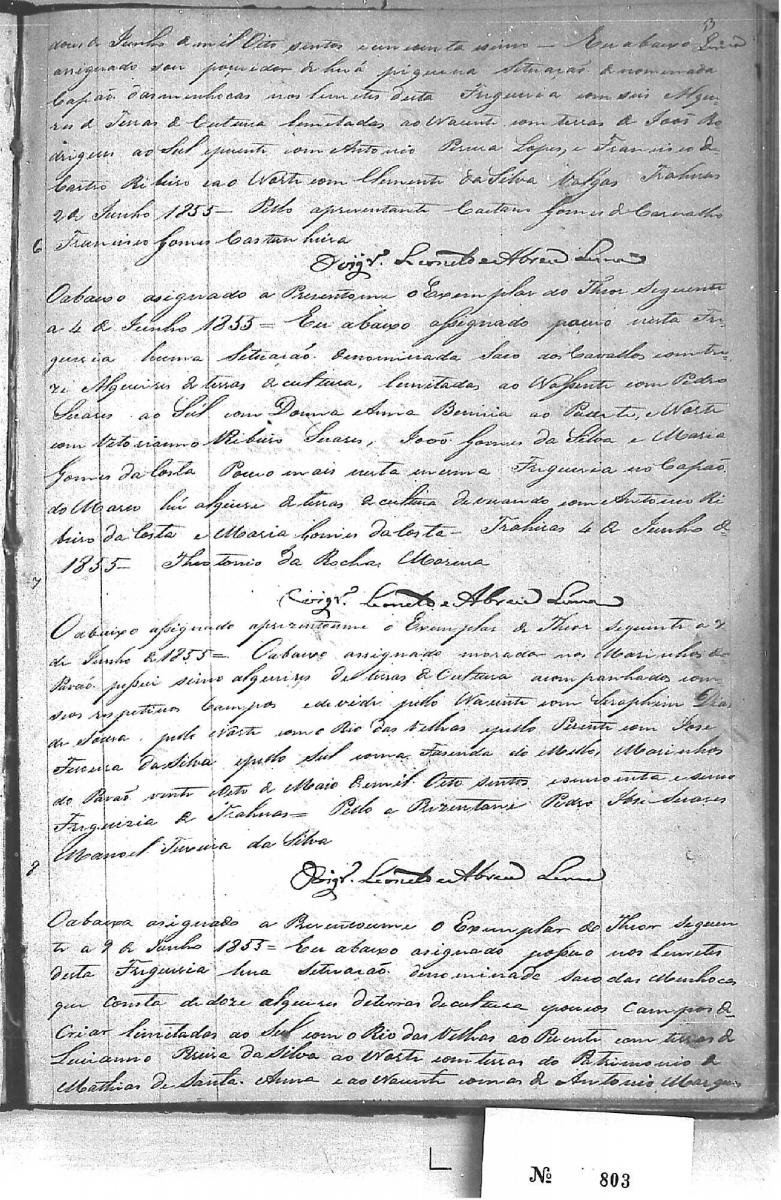 3
dous de Junho de mil Oito sentos e sincoenta e sinco — Eu abaixo Lima
assignado sou pouidor de huá piquena Situasaõ denominada
Capaõ das minhocas nos lemetes desta Friguezia com seis Alquei
res de Terras de Cultura lemetadas ao Nacente com terras de Joaõ Ro
drigues ao Sul epuente com Antonio Pereira Lopes, e Francisco de
Castro Ribeiro e ao Norte com Clemente da Silva Vargas Trahiras
2 de Junho 1855 — Pello aprezentante Caetano Gomes de Carvalho
6 Francisco Gomes Castanheira
Vigrº. Leonel de Abreu Lima
O abaixo asignado a Prezentoume o Exemplar do Theor Seguente
a 4 de Junho 1855 = Eu abaixo assignado pouuo nesta Fri
guezia huma Situasaõ denominada Saco dos Cavallos com tre
ze Alqueires de terras de cultura, lemetadas ao Nassente com Pedro
Soares ao Sul com Donna Anna Benicia ao Puente, e Norte
com Vetorianno Ribeiro Soares, Joaõ Gomes da Silva e Maria
Gomes da Costa Pouuo mais nesta mesma Friguezia no Capaõ
do Marco hú alqueire de terras de cultura devizando com Antonio Ri
beiro da Costa e Maria Gomes da Costa — Trahiras 4 de Junho de
7 1855 — Theotonio da Rocha Moreira
Vigrº. Leonel de Abreu Lima
O abaixo assignado aprezentoume o Exemplar de Theor seguente a 7
de Junho de 1855 = O abaixo assignado morador nos Marinhos do
Pavaõ pussui sinco alqueires de terras de Cultura acompanhados com
seos respetivos Campos e devide pello Nacente com Seraphim Dias
de Souza pello Norte com o Rio das Velhas epello Puente com Jose
Teixeira da Silva epello Sul com a Fazenda do Mello, Marinhos
do Pavaõ vinte Oito de Maio de mil Oito sentos e sincoenta e sinco
Friguezia de Trahiras = Pello a Prezentante Pedro Jose Soares
8 Manoel Teixeira da Silva
Vigrº. Leonel de Abreu Lima
O abaixa asignado a Prezentoume o Exemplar do Theor Seguen
te a 9 de Junho 1855 = Eu abaixo asignado possuo nos Lemetes
desta Friguezia huá Setuasaõ denominada saco das Menhocas
que consta de doze alqueires de terras de cultura epoucos Campos de
Criar lemetadas ao Sul com o Rio das Velhas ao Puente com terras de
Lucianno Pereira da Silva ao Norte com terras do Patrimonio de
Mathias de Santa Anna e ao Nacente com as de Antonio Marque
Nº 803